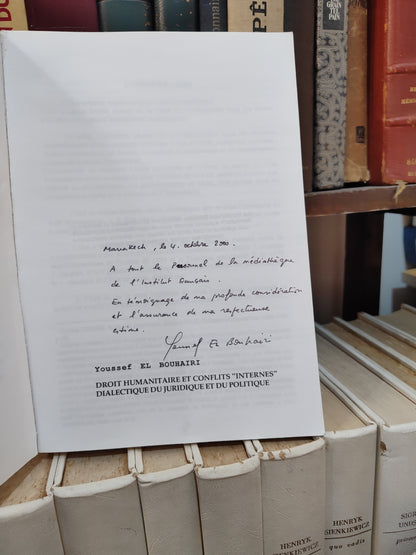 Marrakech, le 4 octobre 2000.
A tout le Personnel de la médiathèque
de l'Institut Français.
En témoignage de ma profonde considération
et l'assurance de ma respectueuse
estime.
Youssef El Bouhairi
Youssef EL BOUHAIRI
DROIT HUMANITAIRE ET CONFLITS "INTERNES"
DIALECTIQUE DU JURIDIQUE ET DU POLITIQUE
HENRYK
SIENKIEWICZ
HENRYK
SIENKIEWICZ
quo vadis